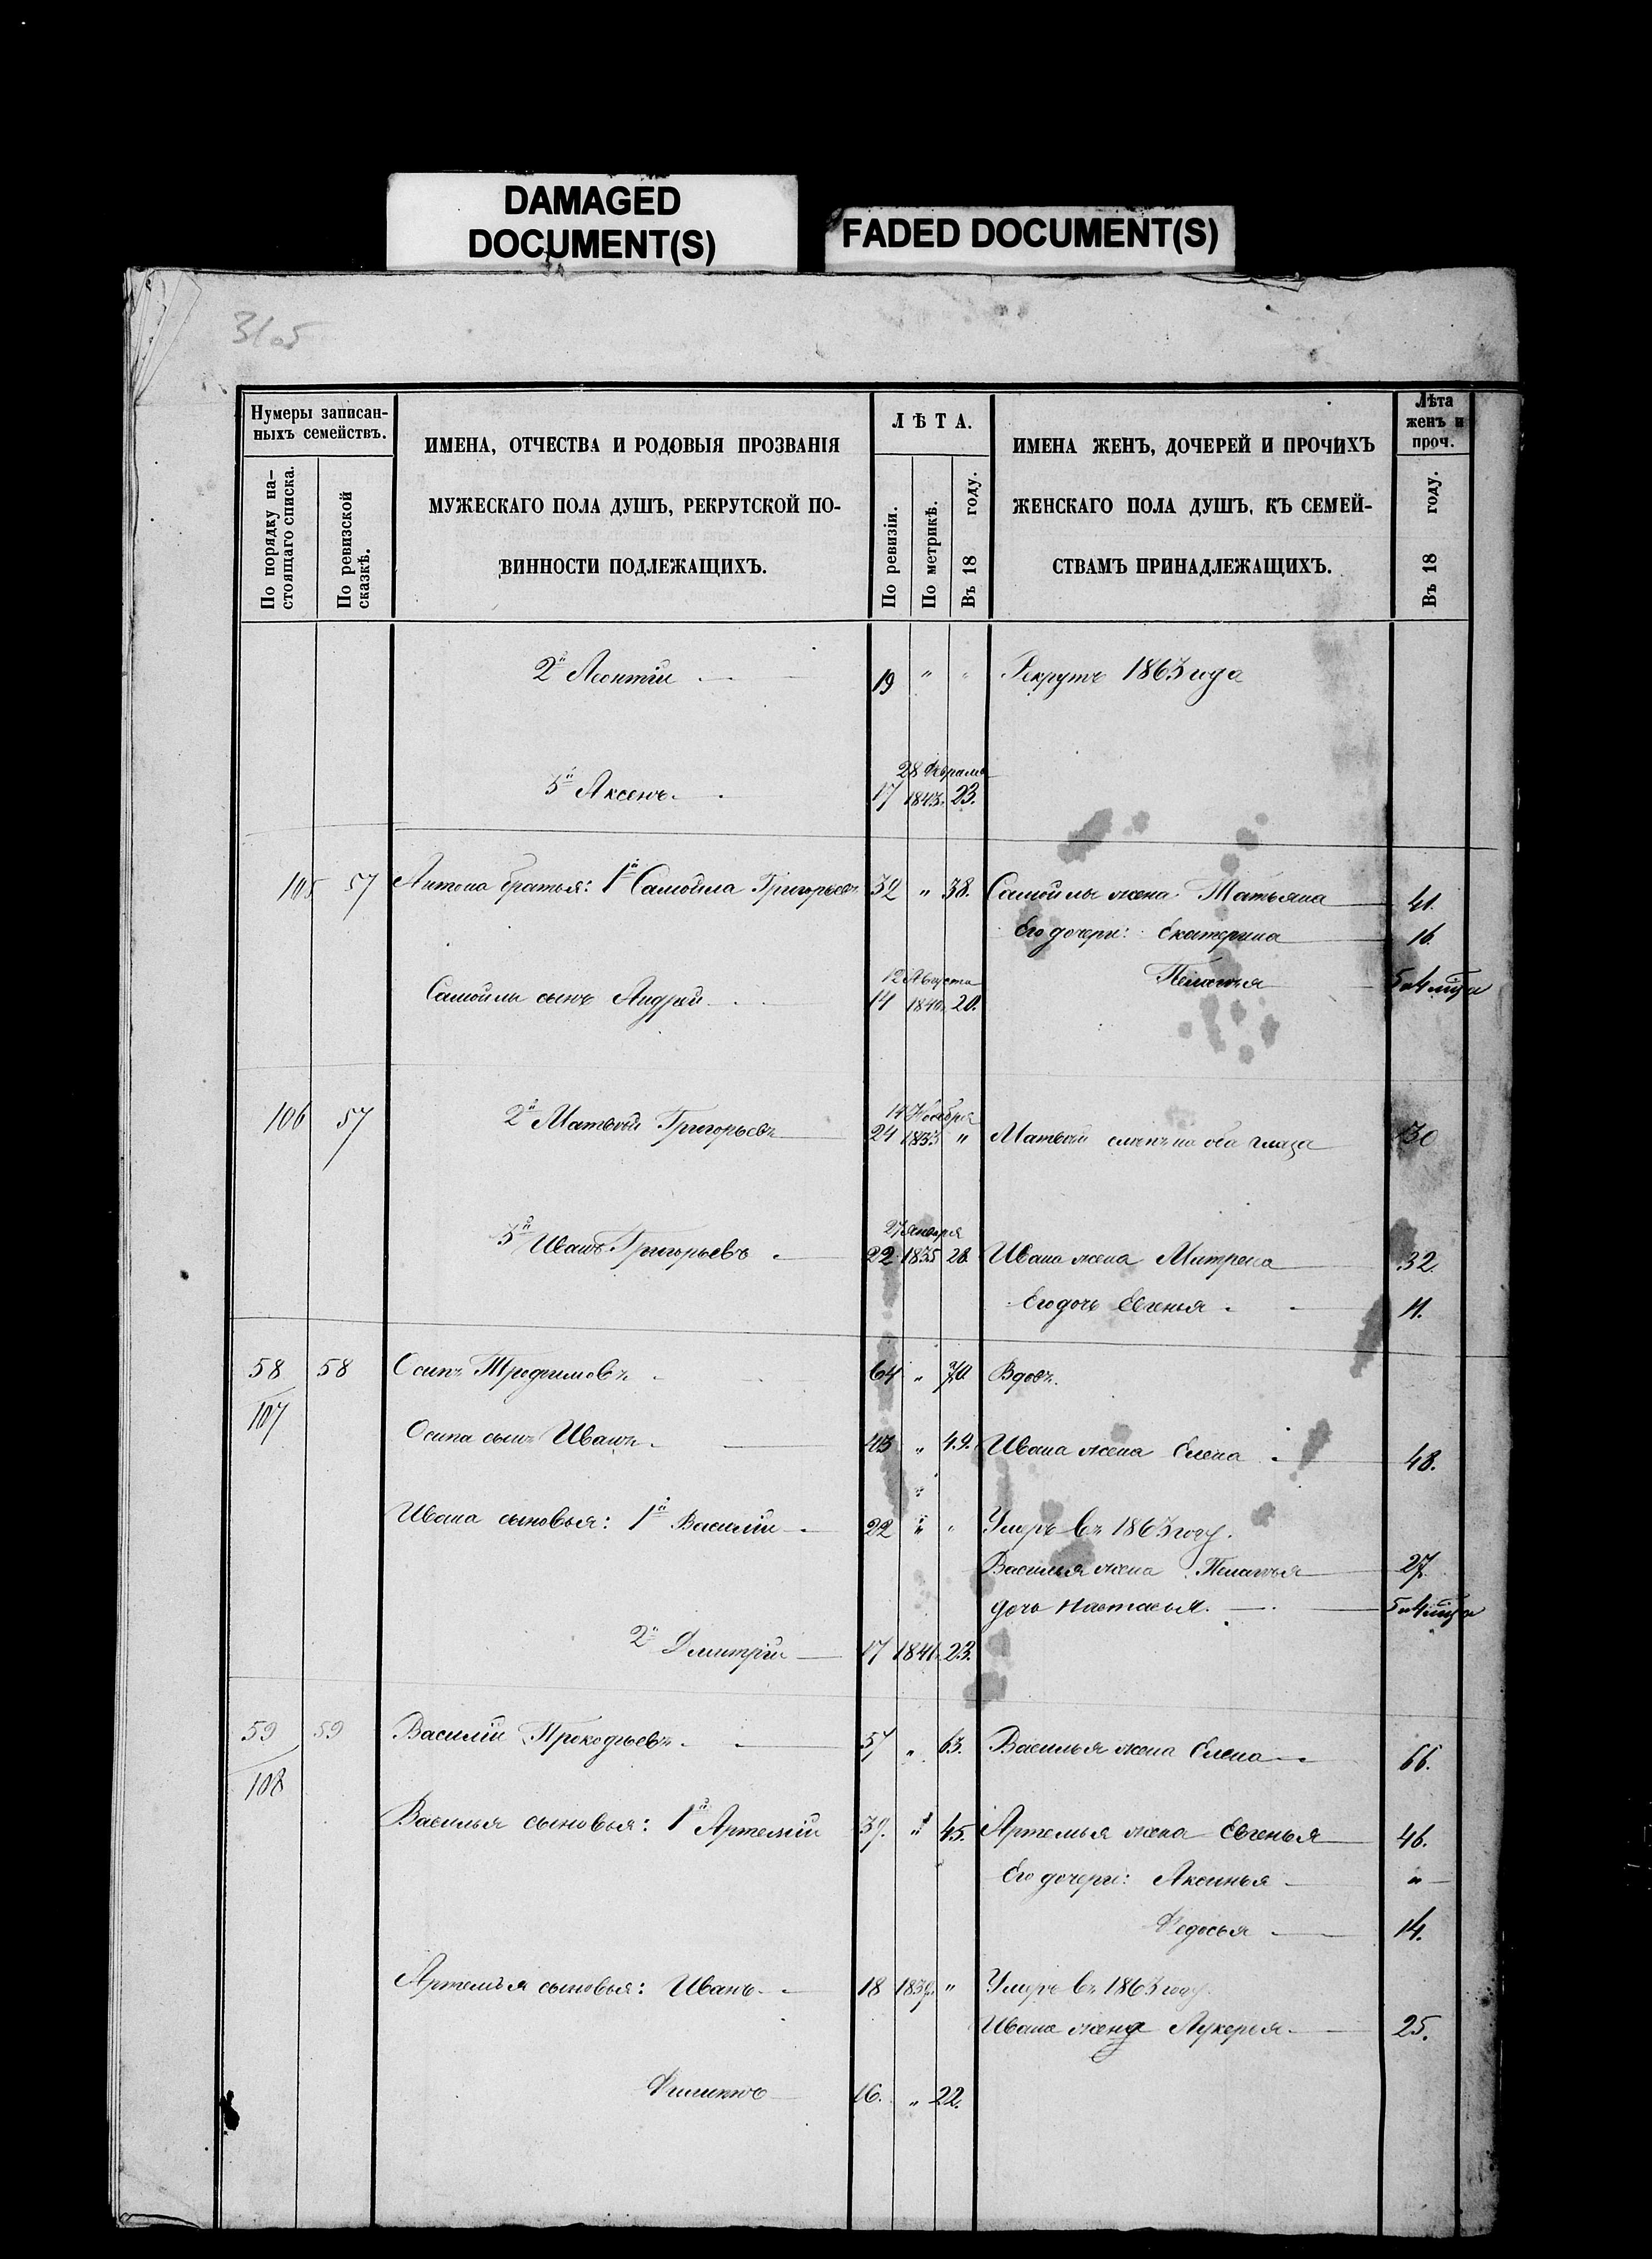 DAMAGED
DOCUMENT(S)
FADED DOCUMENT(S)
Нумеры записан-
ныхъ семействъ.
По порядку на-
стоящаго списка.
По ревизской
сказкѣ.
ИМЕНА, ОТЧЕСТВА И РОДОВЫЯ ПРОЗВАНІЯ
МУЖЕСКАГО ПОЛА ДУШЪ, РЕКРУТСКОЙ ПО-
ВИННОСТИ ПОДЛЕЖАЩИХЪ.
ЛѢТА.
По ревизіи.
По метрикѣ.
Въ 18 году.
ИМЕНА ЖЕНЪ, ДОЧЕРЕЙ И ПРОЧИХЪ
ЖЕНСКАГО ПОЛА ДУШЪ, КЪ СЕМЕЙ-
СТВАМЪ ПРИНАДЛЕЖАЩИХЪ.
Лѣта
женъ и
проч.
Въ 18 году.
2й Леонтій 19 " " Рекрутъ 1863 года
28 Февраля
3й Аксенъ. 17 1843. 23.
105 57 Антона братья: 1й Самойла Григорьевъ 32 " 38. Самойлы жена Татьяна 41.
Его дочери: Екатерина 16.
12 Августа Пелагѣя 5 и 4 мѣ-ца
Самойлы сынъ Андрей 14 1840. 20.
14 Ноября
106 57 2й Матвѣй Григорьевъ 24 1833 " Матвѣй слѣпъ на оба глаза 30
27 Января
3й Иванъ Григорьевъ 22 1835 28. Ивана жена Митрена 32.
Его дочь Евгенья 11.
58 58 Осипъ Трофимовъ 64 " 70. Вдовъ.
107
Осипа сынъ Иванъ 43 " 49. Ивана жена Елена 48.
Ивана сыновья: 1й Василій 22 " " Умеръ въ 1863 году.
Василья жена Пелагѣя 27.
дочь Настасья. 5 и 4 мѣ-ца
2й Дмитрій 17 1841. 23.
59 59 Василій Прокофьевъ 57 " 63. Василья жена Елена 66.
108
Василья сыновья: 1й Артемій 39. " 45. Артемья жена Евгенья 46.
Его дочери: Аксинья "
Федосья 14.
Артемья сыновья: Иванъ 18 1839. " Умеръ въ 1863 году.
Ивана жена Лукерья 25.
Филиппъ 16. " 22.